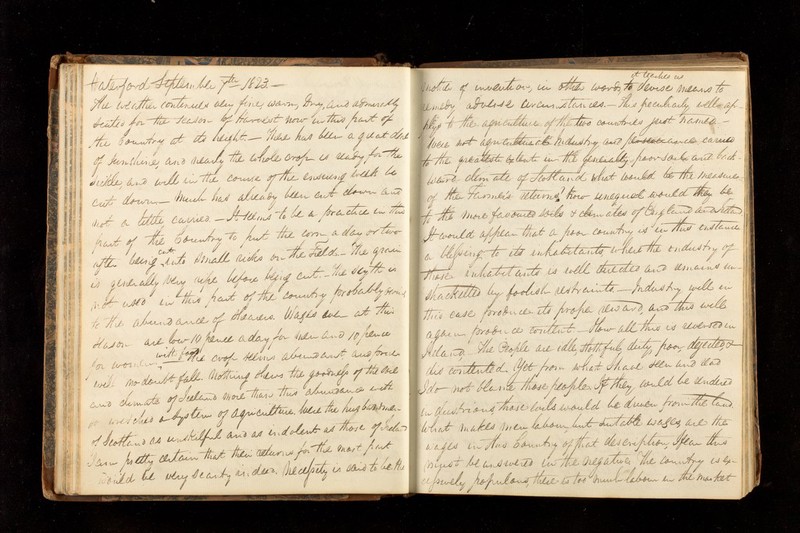 Waterford September 7th 1823 —
The weather continues very fine, warm, dry, and admirably
suited for the season of Harvest now in this part of
the Country at its height. — There has been a great deal
of sunshine, and nearly the whole crop is ready for the
sickle, and will in the course of the ensuing week be
cut down — Much has already been cut down and
not a little carried — It seems to be a practice in this
part of the Country to put the corn a day or two
after being cut into small ricks on the Field — The grain
is generally very ripe before being cut — The scythe is
not used in this part of the country probably owing
to the abundance of shearers. Wages even at this
season are low 10 pence a day for men and 10 pence
for women with food. The crop seems abundant and prices
will no doubt fall. Nothing shews the goodness of the soil
and climate of Ireland more than this abundance with
so wretched a system of agriculture. Were the husbandmen
of Scotland as unskilful and as indolent as those of Ireland
I am pretty certain that their returns for the most part
would be very scanty indeed. Necessity is said to be the
mother of invention, in other words, it teaches us to devise means to
remedy adverse circumstances. — This peculiarly well ap-
plys to the agriculture of the two countries just named —
Were not agricultural Industry and perseverance carried
to the greatest extent in the generally poor soil and back-
ward climate of Scotland what would be the measure
of the Farmers returns, how unequal would they be
to the more favoured soils & climates of England and Ireland
It would appear that a poor country is in this instance
a blessing to its inhabitants where the industry of
those inhabitants is well directed and remains un-
shackelled by foolish restraints — Industry will in
this case produce its proper reward, and this will
again produce content. — How all this is reversed in
Ireland. The People are idle, slothful, dirty, poor, dejected &
discontented. Yet from what I have seen and read
I do not blame those people. If they could be rendered
industrious those evils would be driven from the land.
What makes men labour, but suitable wages, are the
wages in this country of that description, I fear this
must be answered in the negative. The country is ex-
cessively populous, there is too much labour in the market